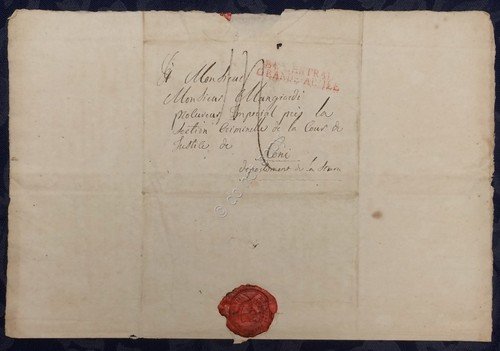 BAU CENTRAL
GRANDE-ARMÉE
A Monsieur
Monsieur
procureur Imperial près la
Section Criminelle de la Cour de
Justice de
Coni
département de la Stura